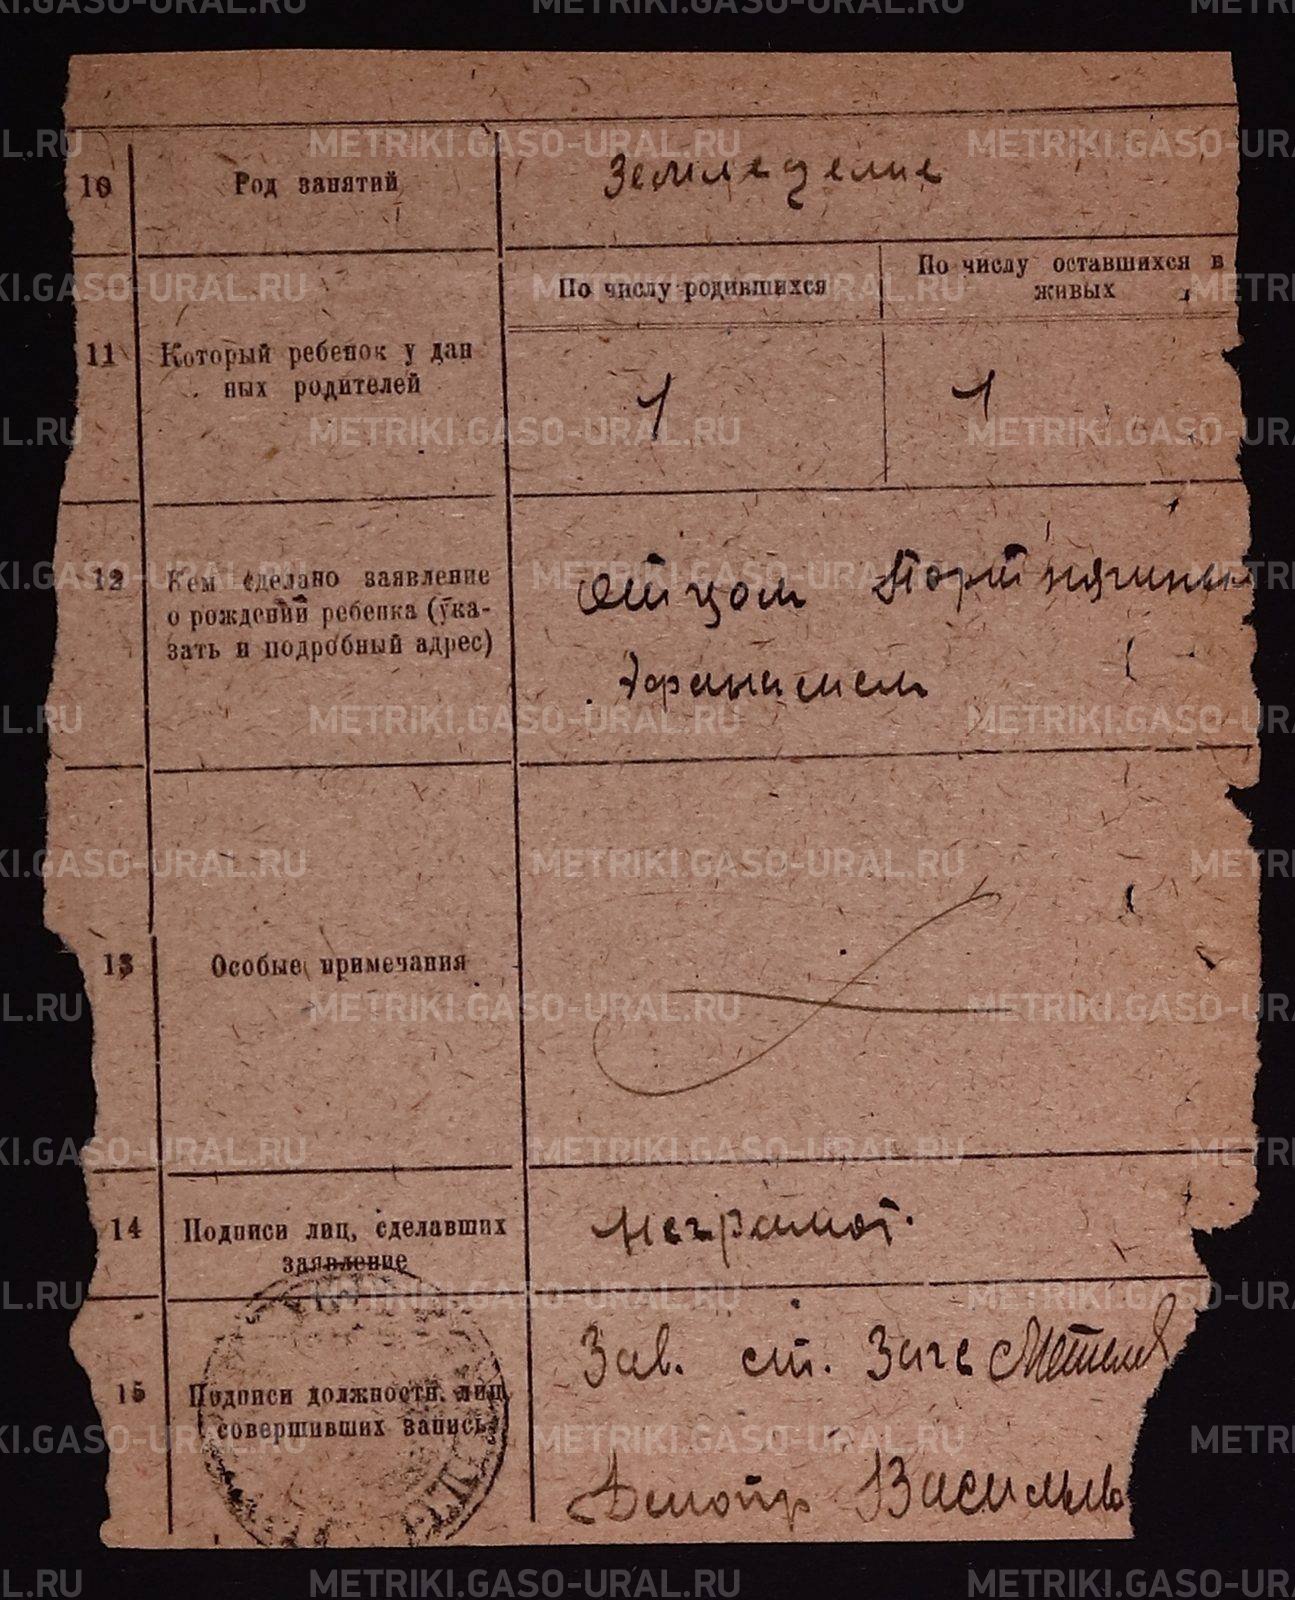 10 Род занятий Земледелие
По числу родившихся По числу оставшихся в
живых
11 Который ребенок у дан
ных родителей 1 1
12 Кем сделано заявление
о рождений ребенка (ука-
зать и подробный адрес)
Отцом Портнягиным
Афанасием
13 Особые примечания
14 Подписи лиц, сделавших
заявление
Неграмот.
15 Подписи должностн. лиц,
совершивших запись
Зав. ст. Загс
Делопр Васильев
METRIKI.GASO-URAL.RU